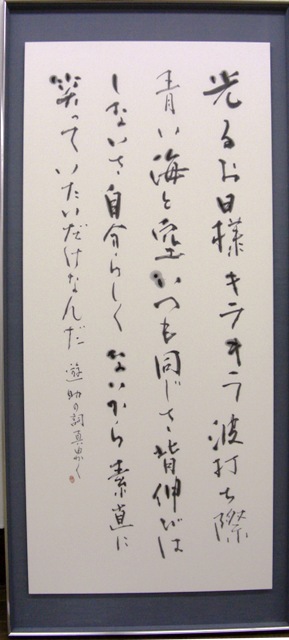 光るお日様キラキラ波打ち際
青い海と空いつも同じさ背伸びは
しないさ自分らしくないから素直に
笑っていたいだけなんだ 遊助の詞真里く